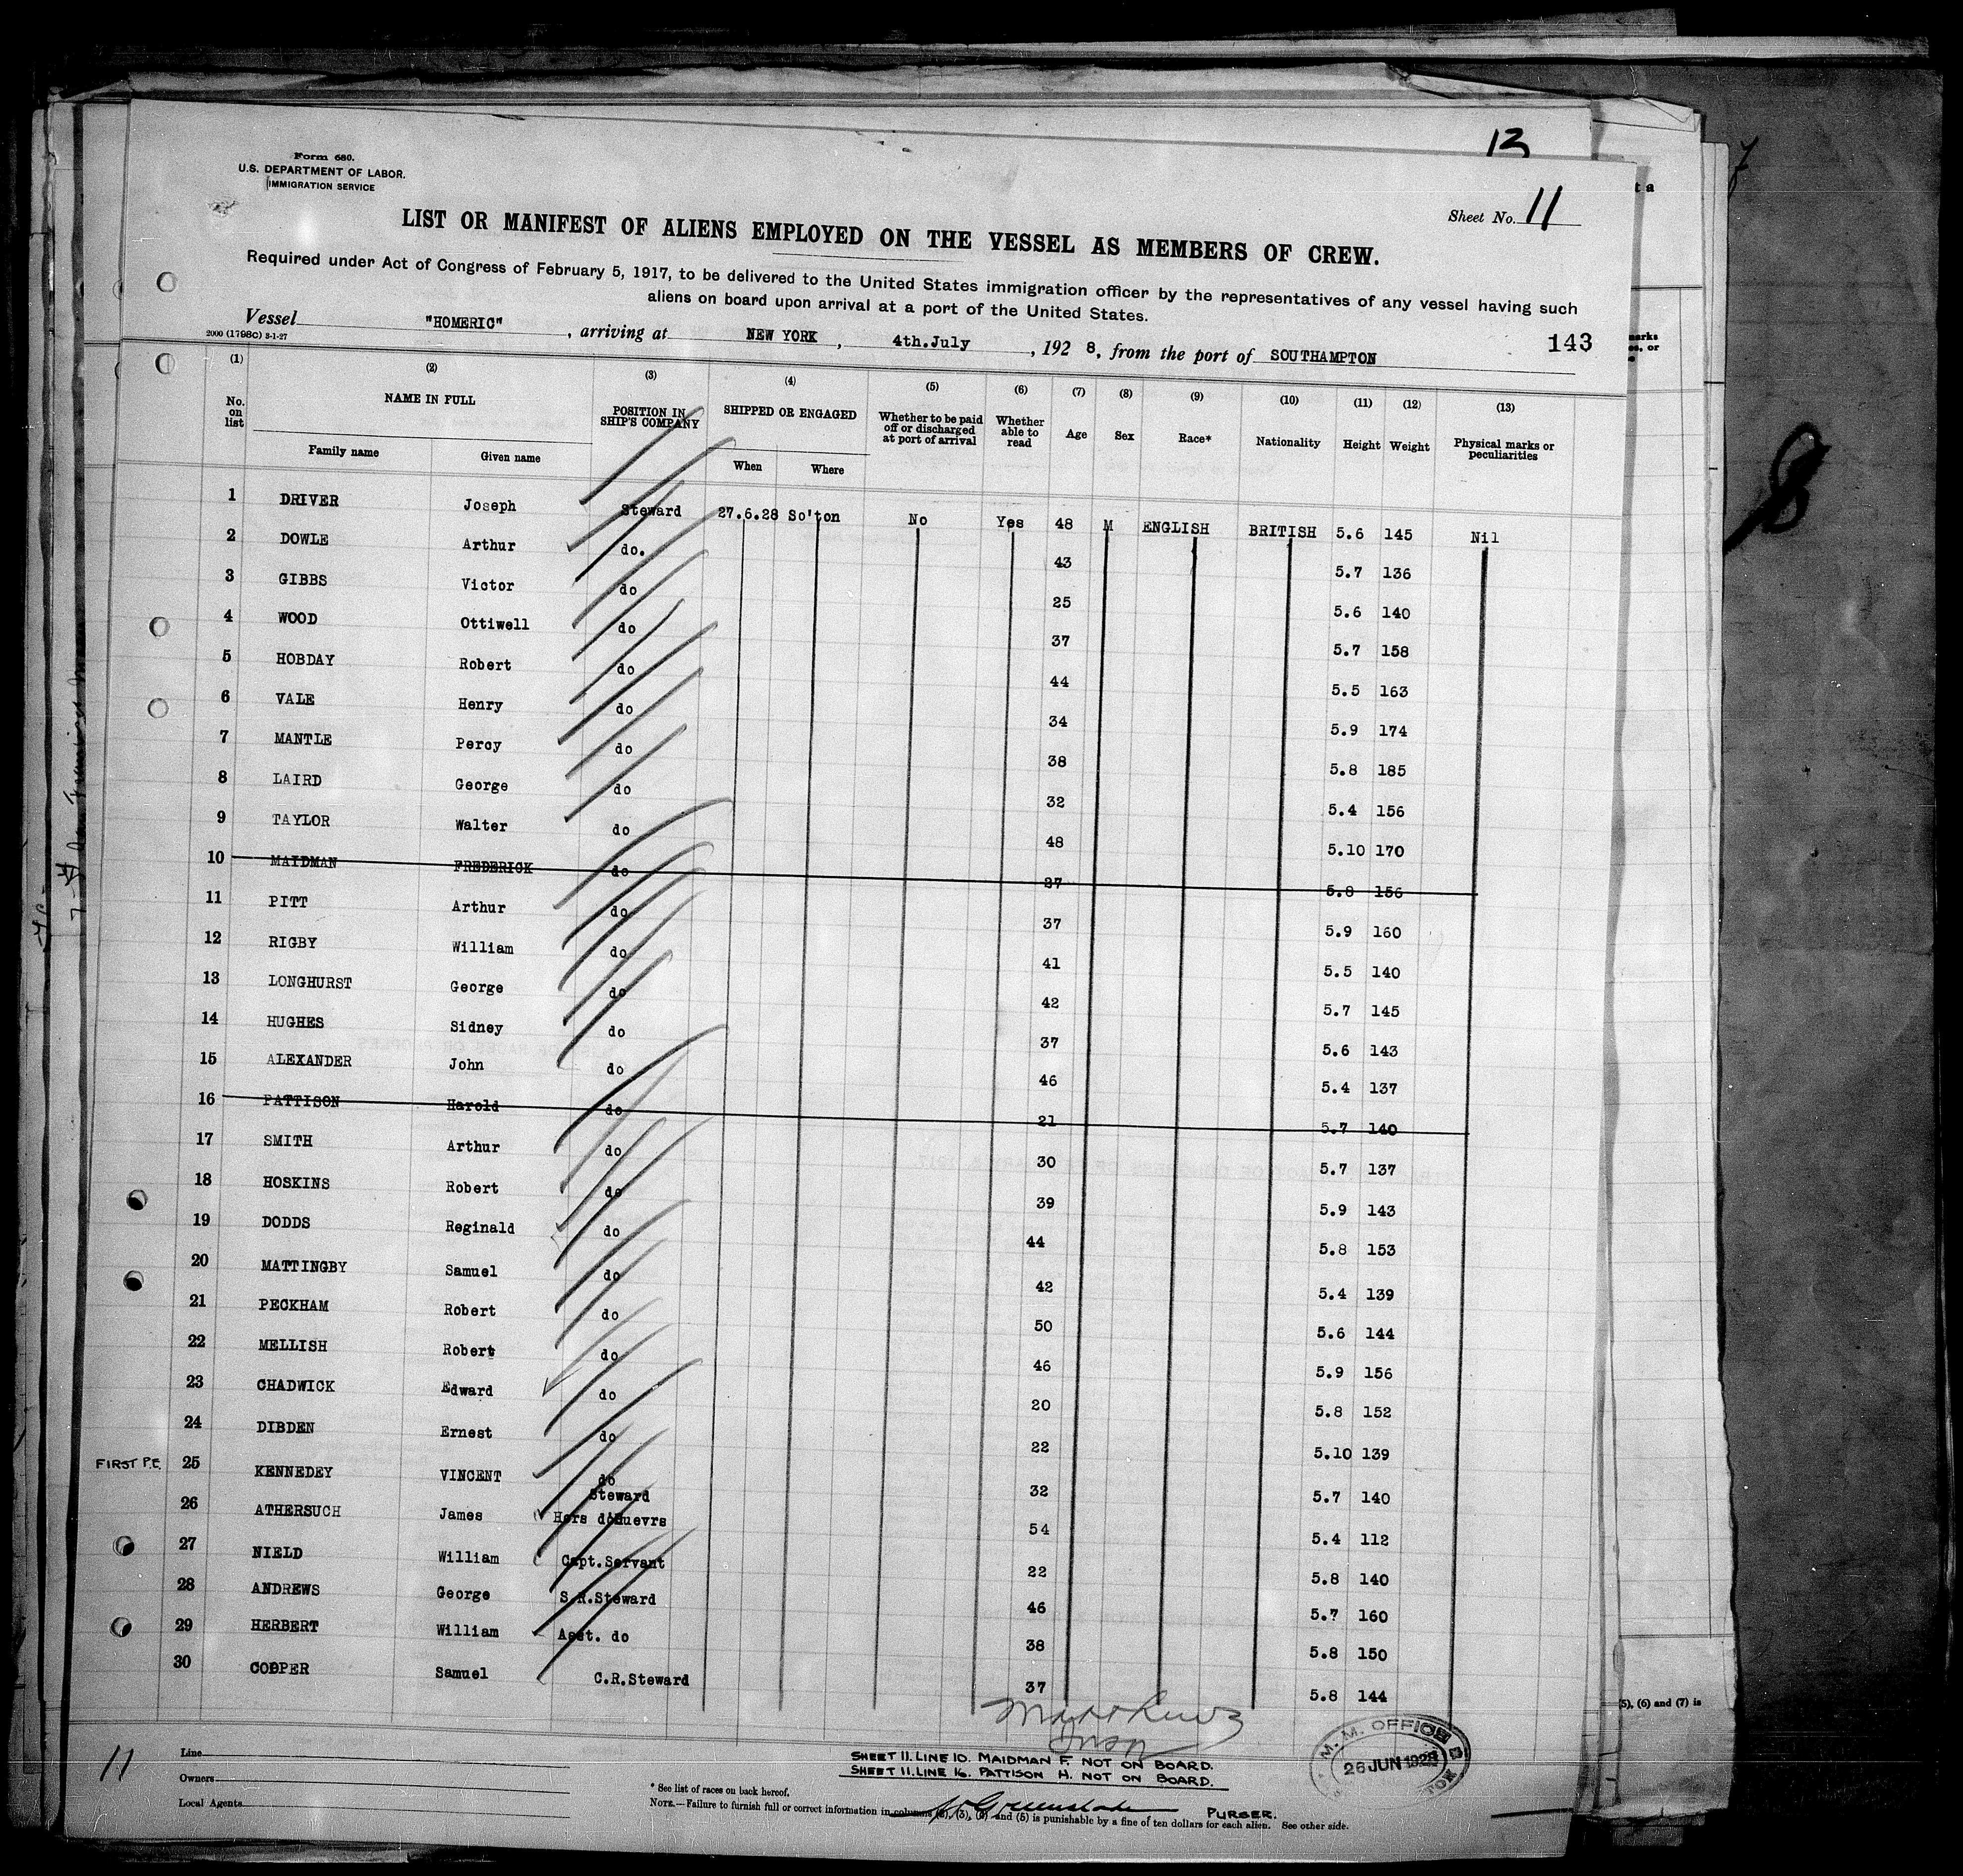 13
Form 680.
U.S. DEPARTMENT OF LABOR.
IMMIGRATION SERVICE
Sheet No. 11
LIST OR MANIFEST OF ALIENS EMPLOYED ON THE VESSEL AS MEMBERS OF CREW.
Required under Act of Congress of February 5, 1917, to be delivered to the United States immigration officer by the representatives of any vessel having such
aliens on board upon arrival at a port of the United States.
Vessel "HOMERIC", arriving at NEW YORK, 4th.July, 192 8, from the port of SOUTHAMPTON
2000 (1798C) 3-1-27
143
(1) (2) (3) (4) (5) (6) (7) (8) (9) (10) (11) (12) (13)
No. on list NAME IN FULL POSITION IN SHIP'S COMPANY SHIPPED OR ENGAGED Whether to be paid off or discharged at port of arrival Whether able to read Age Sex Race* Nationality Height Weight Physical marks or peculiarities
Family name Given name When Where
1 DRIVER Joseph Steward 27.6.28 So'ton No Yes 48 M ENGLISH BRITISH 5.6 145 Nil
2 DOWLE Arthur do. 43 5.7 136
3 GIBBS Victor do 25 5.6 140
4 WOOD Ottiwell do 37 5.7 158
5 HOBDAY Robert do 44 5.5 163
6 VALE Henry do 34 5.9 174
7 MANTLE Percy do 38 5.8 185
8 LAIRD George do 32 5.4 156
9 TAYLOR Walter do 48 5.10 170
10 MAIDMAN FREDERICK do 27 5.8 156
11 PITT Arthur do 37 5.9 160
12 RIGBY William do 41 5.5 140
13 LONGHURST George do 42 5.7 145
14 HUGHES Sidney do 37 5.6 143
15 ALEXANDER John do 46 5.4 137
16 PATTISON Harold do 21 5.7 140
17 SMITH Arthur do 30 5.7 137
18 HOSKINS Robert do 39 5.9 143
19 DODDS Reginald do 44 5.8 153
20 MATTINGBY Samuel do 42 5.4 139
21 PECKHAM Robert do 50 5.6 144
22 MELLISH Robert do 46 5.9 156
23 CHADWICK Edward do 20 5.8 152
24 DIBDEN Ernest do 22 5.10 139
FIRST P.E. 25 KENNEDEY VINCENT do 32 5.7 140
Steward
26 ATHERSUCH James Hors doHuevrs 54 5.4 112
27 NIELD William Capt.Servant 22 5.8 140
28 ANDREWS George S.R.Steward 46 5.7 160
29 HERBERT William Asst. do 38 5.8 150
30 COOPER Samuel C.R.Steward 37 5.8 144
11
Line
Owners
Local Agents
SHEET 11. LINE 10. MAIDMAN F. NOT ON BOARD.
SHEET 11. LINE 16. PATTISON H. NOT ON BOARD.
M. M. OFFICE
26 JUN 1928
* See list of races on back hereof.
PURSER.
NOTE.—Failure to furnish full or correct information in columns (2), (3), (4) and (5) is punishable by a fine of ten dollars for each alien. See other side.
(5), (6) and (7) is